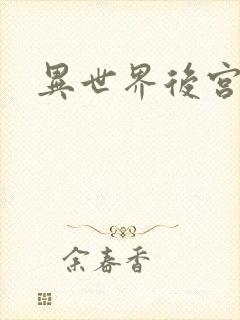 異世界後宮
余春香